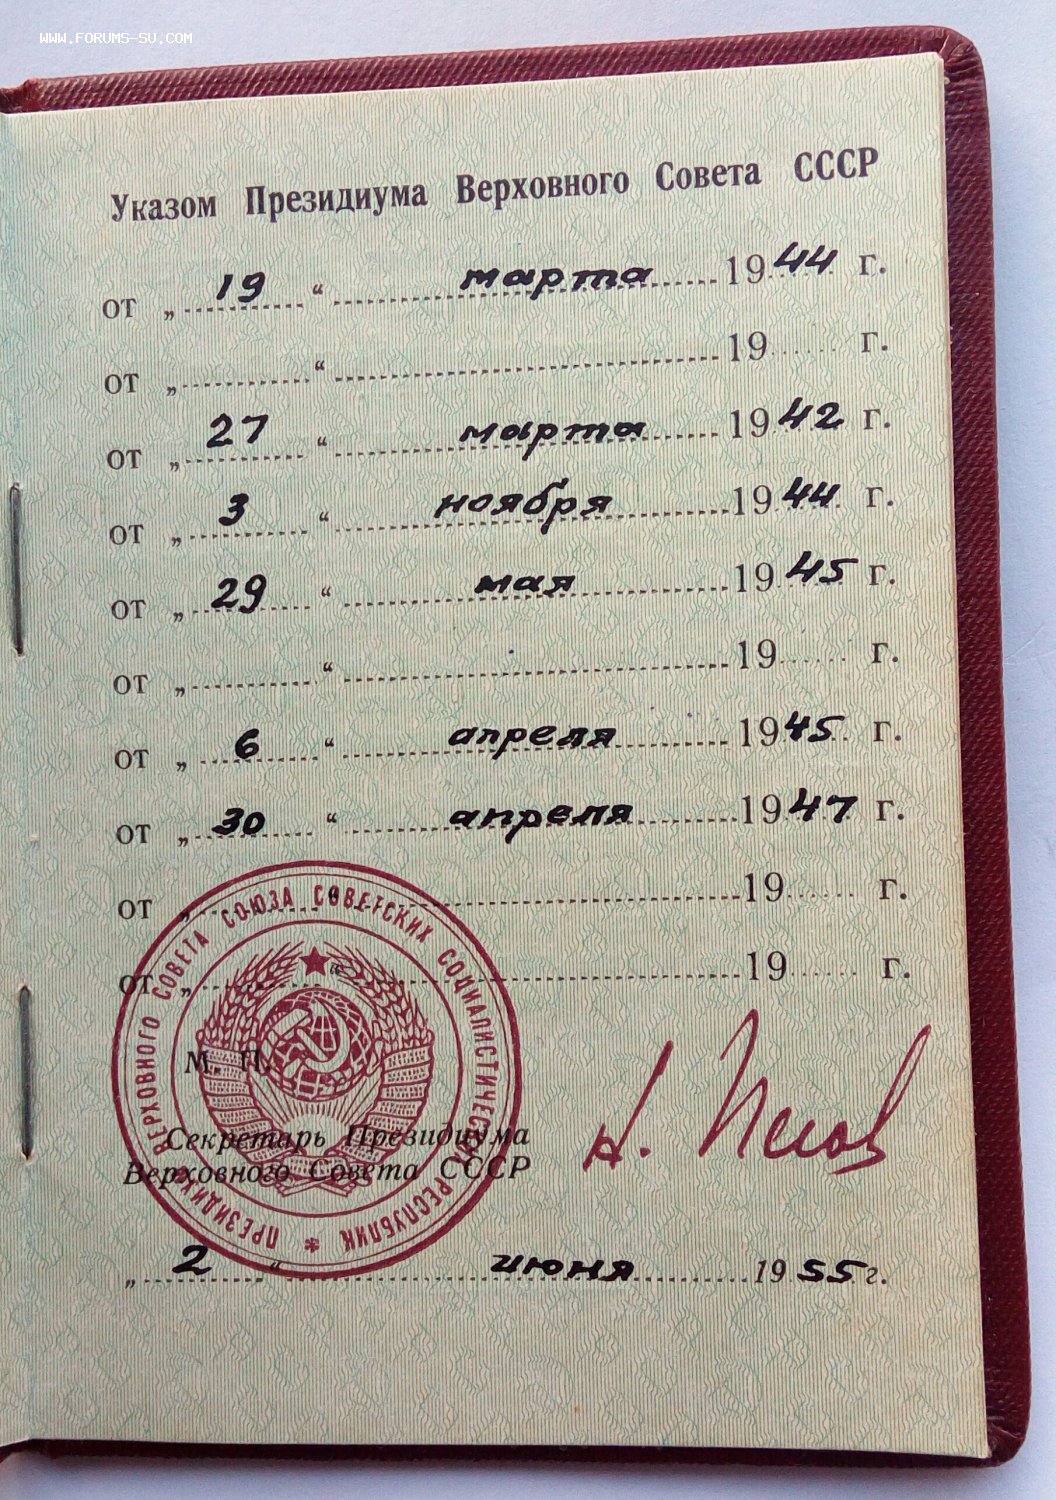 WWW.FORUMS-SU.COM
Указом Президиума Верховного Совета СССР
от „ 19 “ марта 1944 г.
от „ “ 19 г.
от „ 27 “ марта 1942 г.
от „ 3 “ ноября 1944 г.
от „ 29 “ мая 1945 г.
от „ “ 19 г.
от „ 6 “ апреля 1945 г.
от „ 30 “ апреля 1947 г.
от „ “ 19 г.
от „ “ 19 г.
ПРЕЗИДИУМ ВЕРХОВНОГО СОВЕТА СОЮЗА СОВЕТСКИХ СОЦИАЛИСТИЧЕСКИХ РЕСПУБЛИК *
М. П.
Секретарь Президиума
Верховного Совета СССР
Н. Пегов
„ 2 “ июня 1955 г.